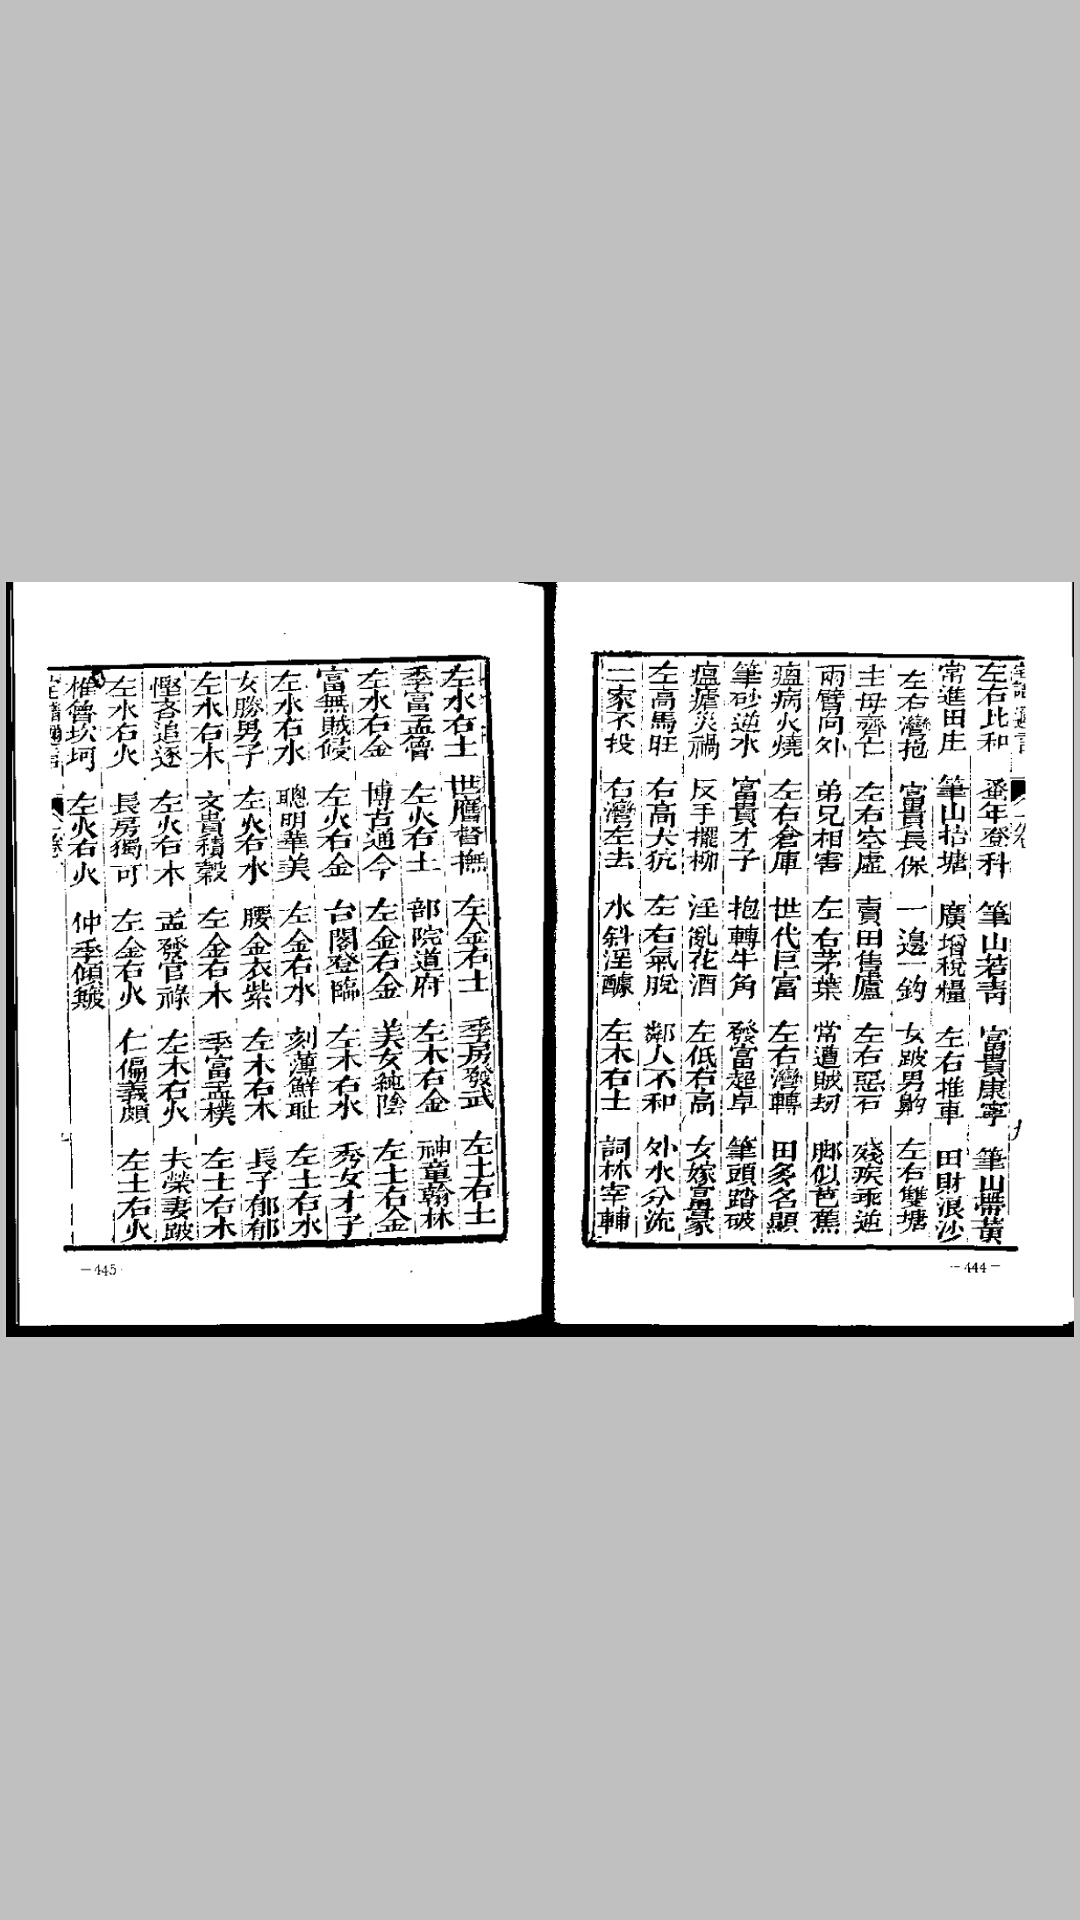 左右比和 番年登科 筆山若靑 富貴康寧 筆山帶黃
常進田庄 筆山拾塘 廣增稅糧 左右推車 田財浪沙
左右灣抱 富貴長保 一邊一鈎 女跛男齁 左右雙塘
主母齊亡 左右空虛 賣田售廬 左右惡石 殘疾乖逆
兩臂向外 弟兄相害 左右茅葉 常遭賊刼 脚似芭蕉
瘟病火燒 左右倉庫 世代巨富 左右灣轉 田多名顯
筆砂逆水 富貴才子 抱轉牛角 發富超卓 筆頭踏破
瘟㾮災禍 反手擺柳 淫亂花酒 左低右高 女嫁富豪
左高馬旺 右高犬狁 左右氣脫 鄰人不和 外水分流
二家不投 右灣左去 水斜淫醵 左木右土 詞林宰輔
—444—
左水右土 世膺督撫 左金右土 季房發武 左土右土
季富孟魯 左火右土 部院道府 左木右金 神童翰林
左水右金 博古通今 左金右金 美女純陰 左土右金
富無賊侵 左火右金 台閣登臨 左木右水 秀女才子
左水右水 聰明華美 左金右水 刻薄鮮耻 左土右水
女勝男子 左火右水 腰金衣紫 左木右木 長子郁郁
左水右木 文貴積穀 左金右木 季富孟樸 左土右木
慳吝追逐 左火右木 孟發官祿 左木右火 夫榮妻跛
左水右火 長房獨可 左金右火 仁偏義頗 左土右火
椎魯坎坷 左火右火 仲季傾皴
—445